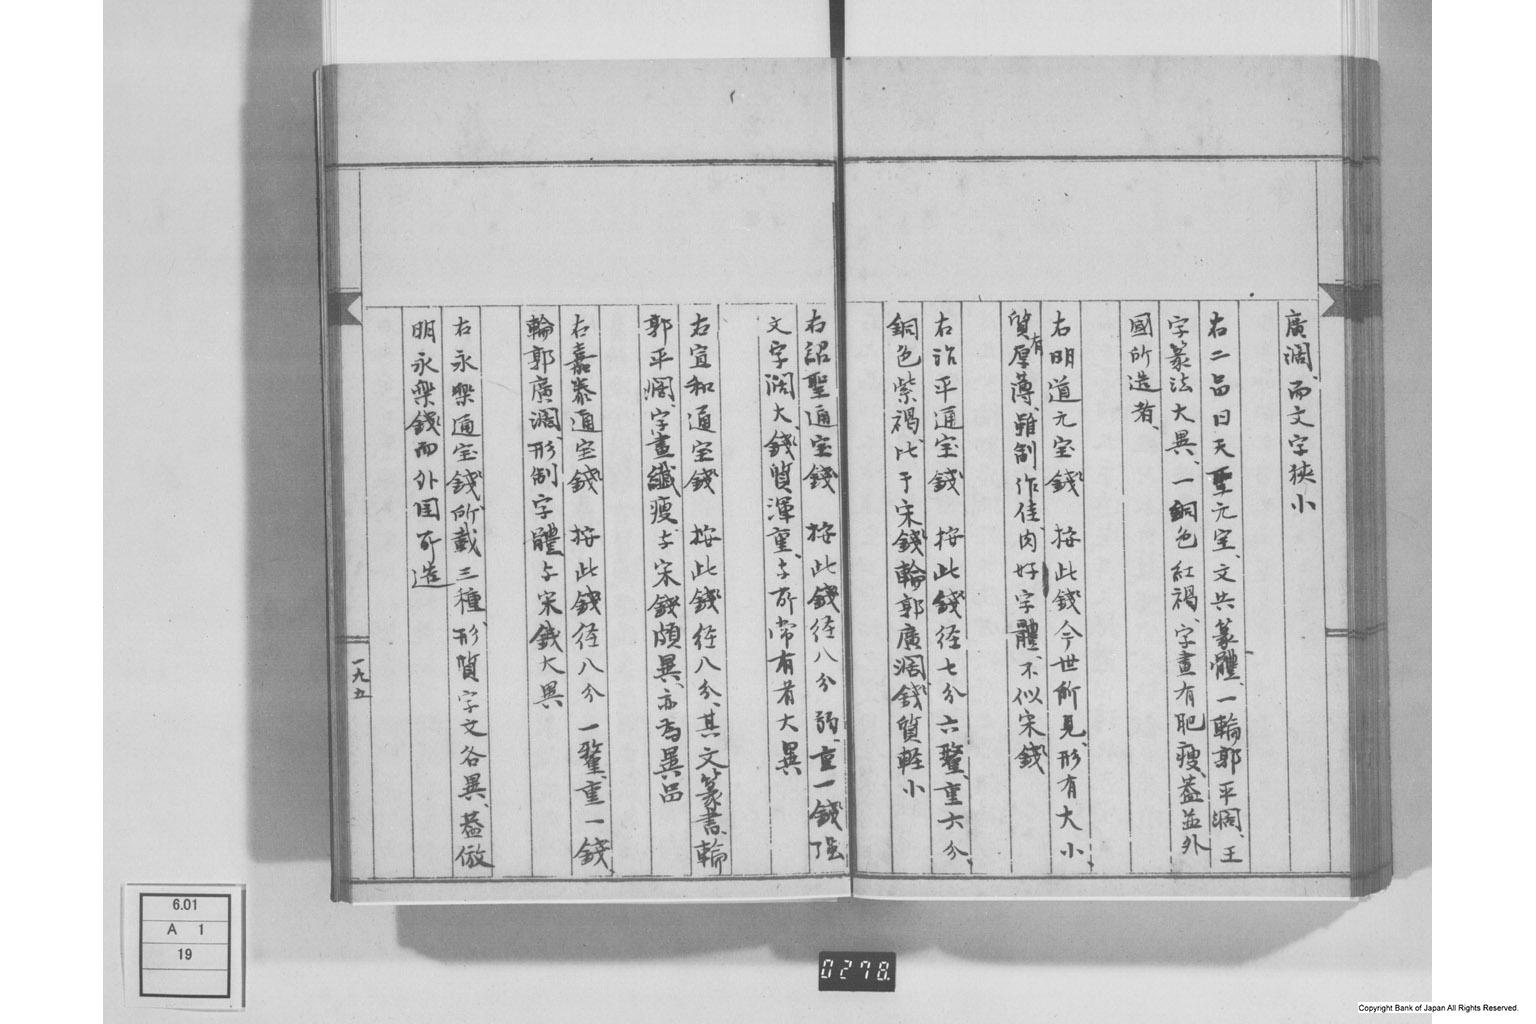 廣濶、而文字狹小
右二品曰天聖元宝、文共篆體、一輪郭平濶、王
字篆法大異、一銅色紅褐、字畫有肥瘦、蓋並外
國所造者、
右明道元宝錢　按此錢今世所見、形有大小、
質有厚薄、雖制作佳、肉好字體、不似宋錢
右治平通宝錢　按此錢径七分六釐、重六分、
銅色紫褐、比于宋錢輪郭廣濶錢質軽小
右紹聖通宝錢　按此錢径八分弱、重一錢强
文字濶大、錢質渾重、与所常有者大異
右宣和通宝錢　按此錢径八分、其文篆書、輪
郭平濶、字畫纖瘦与宋錢頗異、亦為異品
右嘉泰通宝錢　按此錢径八分一釐、重一錢、
輪郭廣濶、形制字體与宋錢大異
右永樂通宝錢、所載三種、形質字文各異、蓋倣
明永樂錢而外国所造
一九五
6.01
A 1
19
0278.
Copyright Bank of Japan All Rights Reserved.